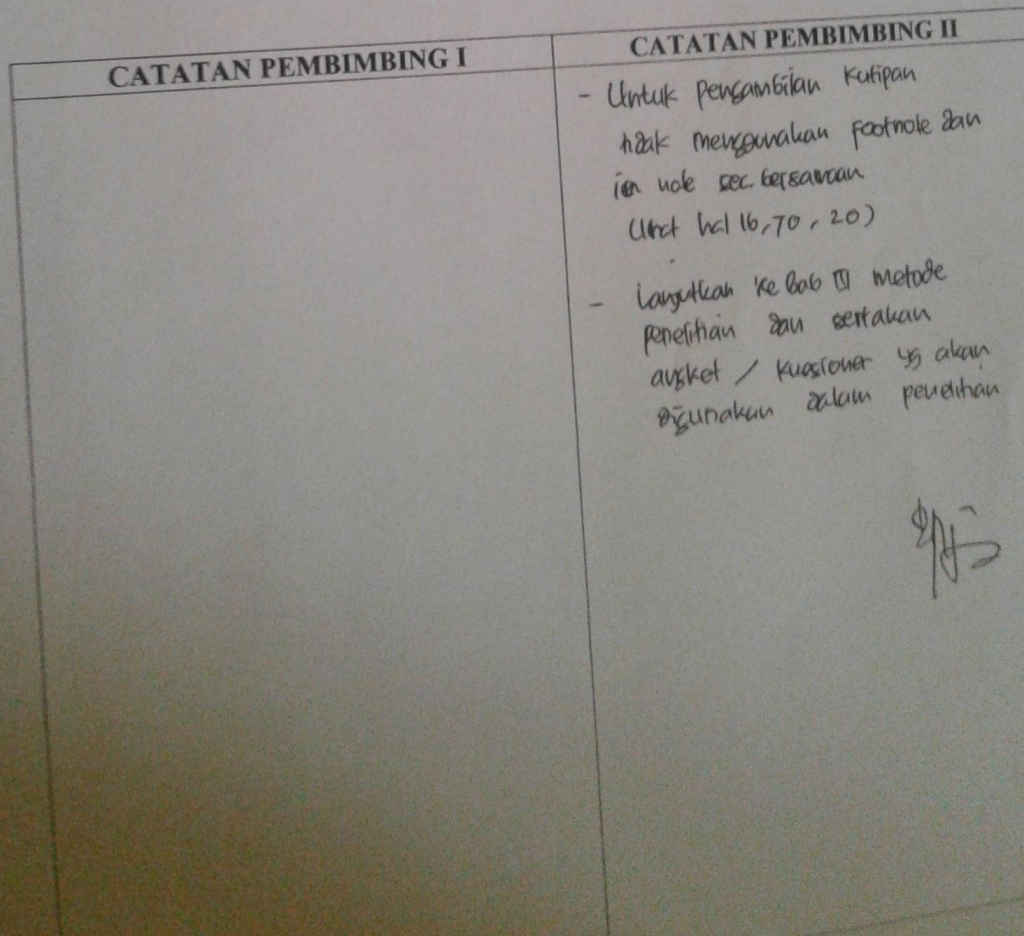 CATATAN PEMBIMBING I
CATATAN PEMBIMBING II
- Untuk pengambilan kutipan
tidak menggunakan footnote dan
in note sec. bersamaan
(lihat hal 16, 70, 20)
- Lanjutkan ke Bab III metode
penelitian dan sertakan
angket / kuesioner yg akan
digunakan dalam penelitian